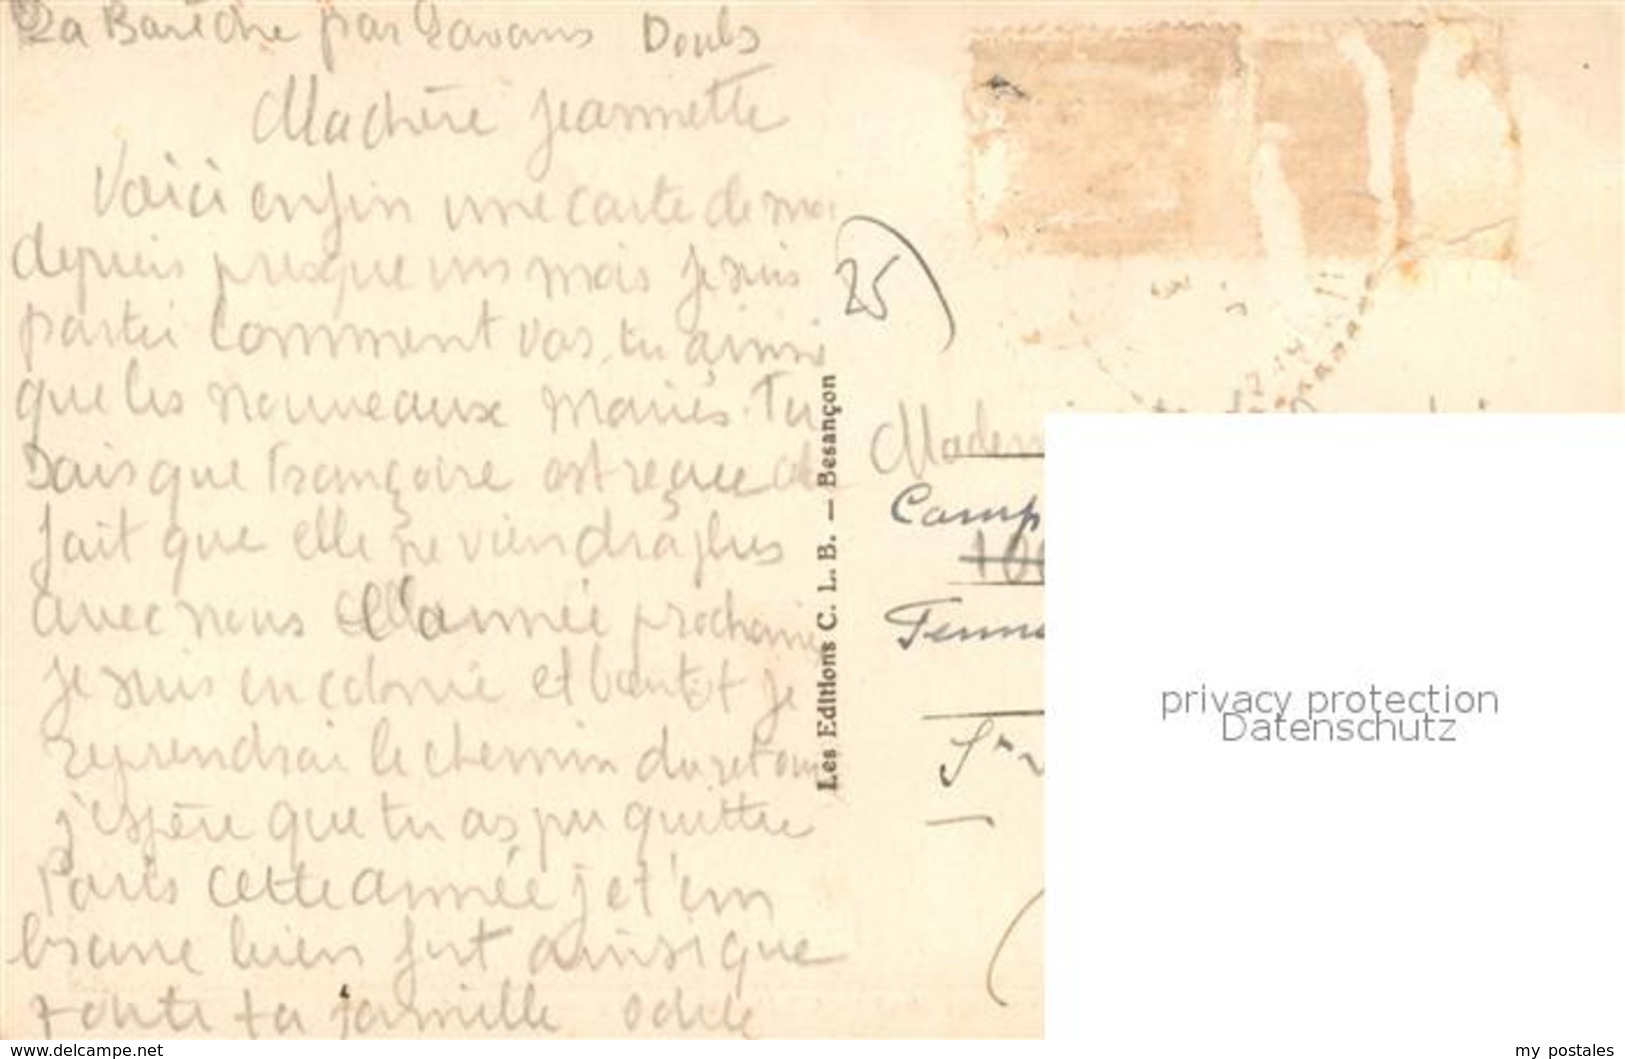 La Barèche par Lavans Doubs
Machère Jeannette
Voici enfin une carte de moi
depuis presque uns mois je suis
partie Comment vas-tu ainsi
que les nouveaux mariés. Tu
sais que Françoise est reçue
fait que elle ne viendra plus
avec nous l'année prochaine
je suis en colonie et bientôt je
reprendrai le chemin du retour
j'espère que tu as pu quitter
Paris cette année je t'em
brasse bien fort ainsi que
toute ta famille Odile
25
Les Editions C. L. B. — Besançon
Camp
Femme
privacy protection
Datenschutz
www.delcampe.net
my postales